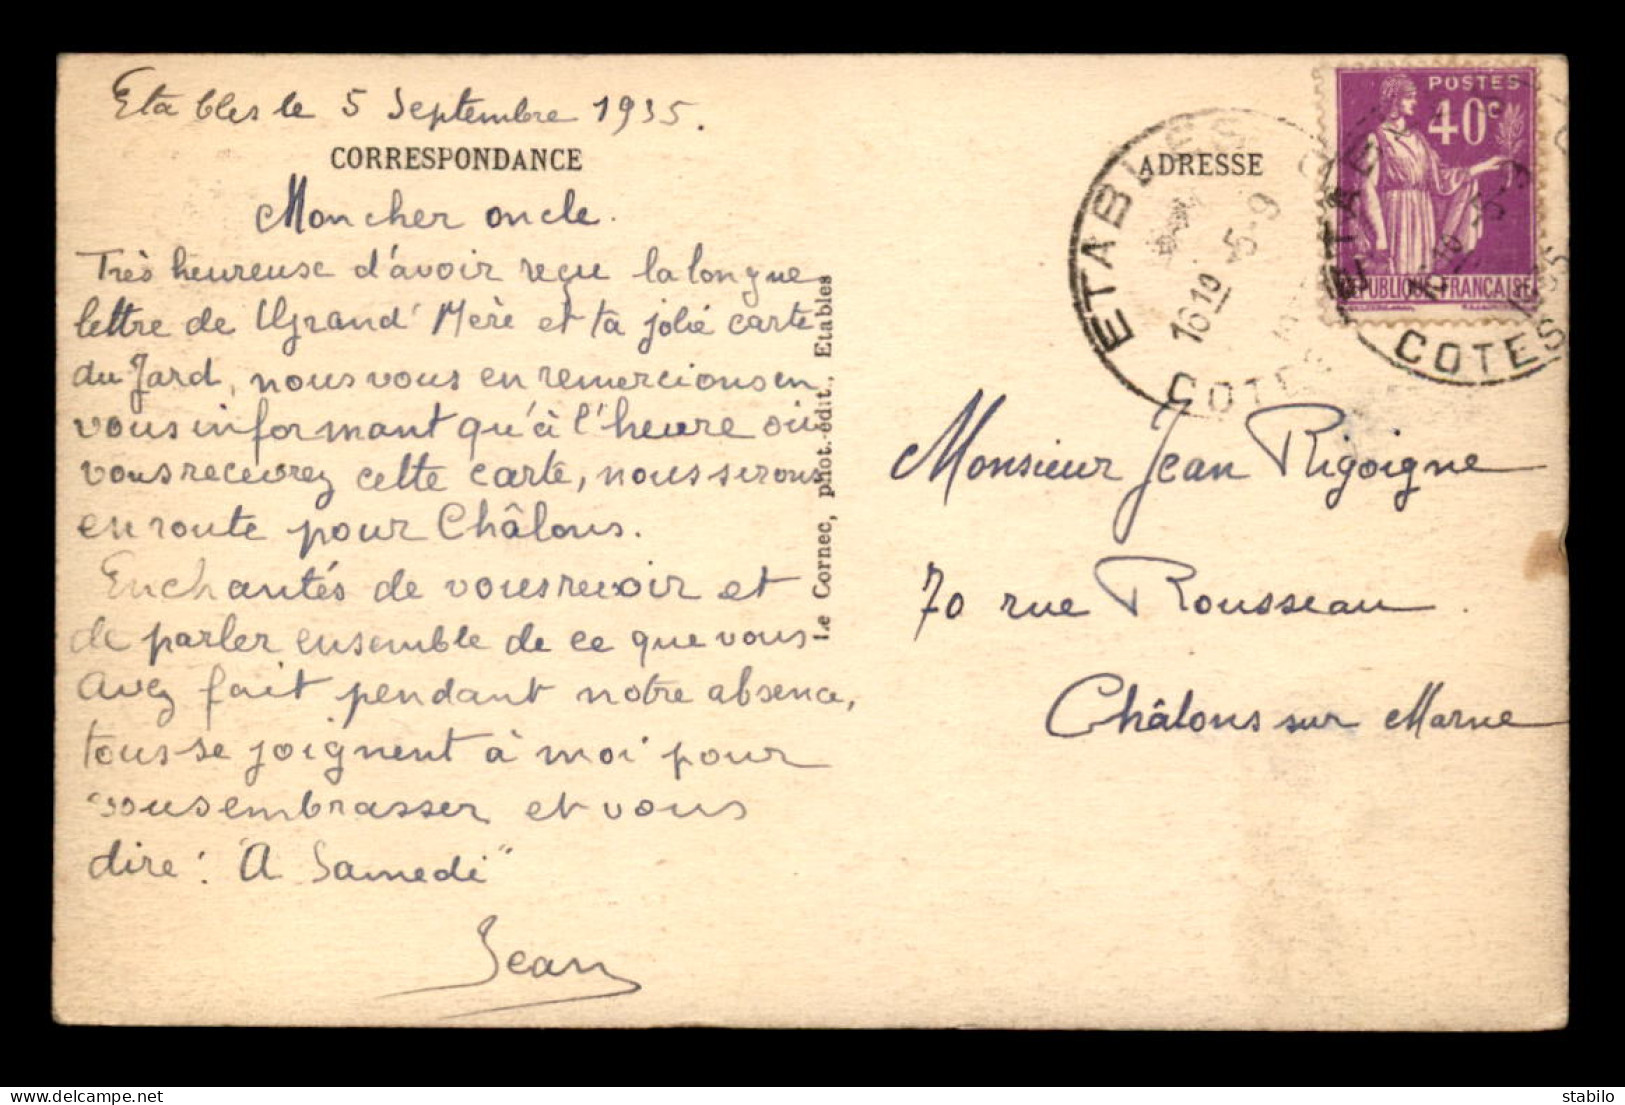 Etables le 5 Septembre 1935.
CORRESPONDANCE
Mon cher oncle.
Très heureuse d'avoir reçu la longue
lettre de Grand' Mère et ta jolie carte
du Jard, nous vous en remercions en
vous informant qu'à l'heure où
vous recevrez cette carte, nous serons
en route pour Châlons.
Enchantés de vous revoir et
de parler ensemble de ce que vous
avez fait pendant notre absence,
tous se joignent à moi pour
vous embrasser et vous
dire: "A Samedi"
Jean
Le Cornec, phot.-édit., Etables
ADRESSE
ETABLES
16 10
5-9
COTES
POSTES
40c
REPUBLIQUE FRANÇAISE
ETABLES
16 10
5-9
35
COTES
Monsieur Jean Rigoigne
70 rue Rousseau.
Châlons sur Marne
delcampe.net
stabilo